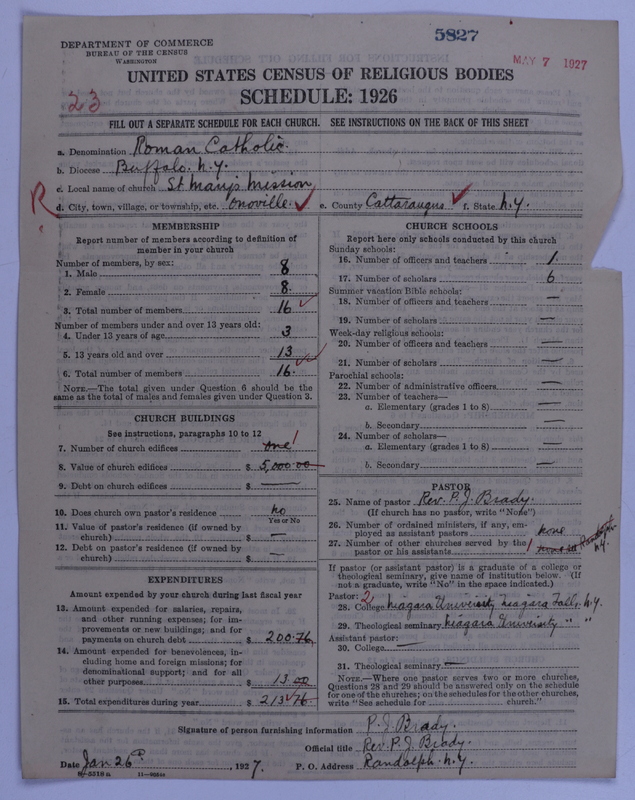 5827
DEPARTMENT OF COMMERCE
BUREAU OF THE CENSUS
WASHINGTON
MAY 7 1927
UNITED STATES CENSUS OF RELIGIOUS BODIES
23
SCHEDULE: 1926
FILL OUT A SEPARATE SCHEDULE FOR EACH CHURCH. SEE INSTRUCTIONS ON THE BACK OF THIS SHEET
a. Denomination Roman Catholic.
b. Diocese Buffalo. N.Y.
c. Local name of church St Mary's Mission
R d. City, town, village, or township, etc. Onoville. e. County Cattaraugus f. State N.Y.
MEMBERSHIP
Report number of members according to definition of
member in your church
Number of members, by sex:
1. Male 8
2. Female 8.
3. Total number of members 16
Number of members under and over 13 years old:
4. Under 13 years of age 3
5. 13 years old and over 13
6. Total number of members 16.
NOTE.—The total given under Question 6 should be the
same as the total of males and females given under Question 3.
CHURCH BUILDINGS
See instructions, paragraphs 10 to 12
7. Number of church edifices one 1
8. Value of church edifices $ 5,000.00
9. Debt on church edifices $ —
10. Does church own pastor's residence no
Yes or No
11. Value of pastor's residence (if owned by
church) $ —
12. Debt on pastor's residence (if owned by
church) $ —
EXPENDITURES
Amount expended by your church during last fiscal year
13. Amount expended for salaries, repairs,
and other running expenses; for im-
provements or new buildings; and for
payments on church debt $ 200.76
14. Amount expended for benevolences, in-
cluding home and foreign missions; for
denominational support; and for all
other purposes $ 13.00
15. Total expenditures during year $ 213.76
CHURCH SCHOOLS
Report here only schools conducted by this church
Sunday schools:
16. Number of officers and teachers 1.
17. Number of scholars 6
Summer vacation Bible schools:
18. Number of officers and teachers —
19. Number of scholars —
Week-day religious schools:
20. Number of officers and teachers —
21. Number of scholars —
Parochial schools:
22. Number of administrative officers —
23. Number of teachers—
a. Elementary (grades 1 to 8) —
b. Secondary —
24. Number of scholars—
a. Elementary (grades 1 to 8) —
b. Secondary —
PASTOR
25. Name of pastor Rev. P. J. Brady.
(If church has no pastor, write "None")
26. Number of ordained ministers, if any, em-
ployed as assistant pastors none
27. Number of other churches served by the
pastor or his assistants 1 Randolph N.Y.
If pastor (or assistant pastor) is a graduate of a college or
theological seminary, give name of institution below. (If
not a graduate, write "No" in the space indicated.)
Pastor: 2
28. College Niagara University Niagara Falls, N.Y.
29. Theological seminary Niagara University " "
Assistant pastor:
30. College —
31. Theological seminary —
NOTE.—Where one pastor serves two or more churches,
Questions 28 and 29 should be answered only on the schedule
for one of the churches; on the schedules for the other churches,
write "See schedule for church."
Signature of person furnishing information P. J. Brady.
Official title Rev. P. J. Brady.
Date Jan 26th, 1927. P. O. Address Randolph. N.Y.